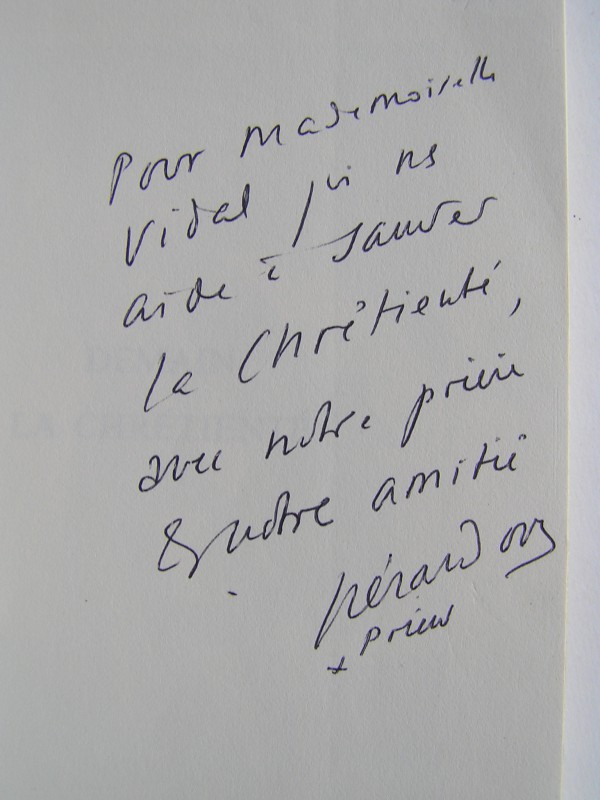 Pour Mademoiselle
Vidal qui ns
aide à sauver
la Chrétienté,
avec notre prière
& notre amitié
Gérard osb
+ Prieur
DEMAIN
LA CHRÉTIENTÉ